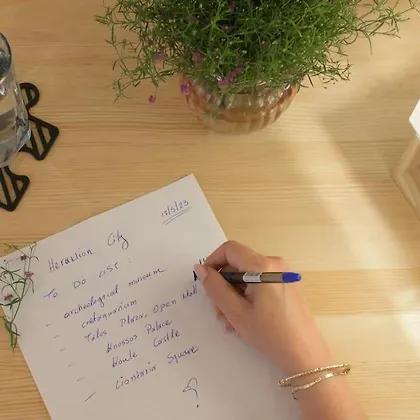 13/5/23
Heraklion City
To Do List:
- archeological museum
- cretaquarium
- Talos Plaza, Open Mall
- Knossos Palace
- Koule Castle
- Liontaria Square